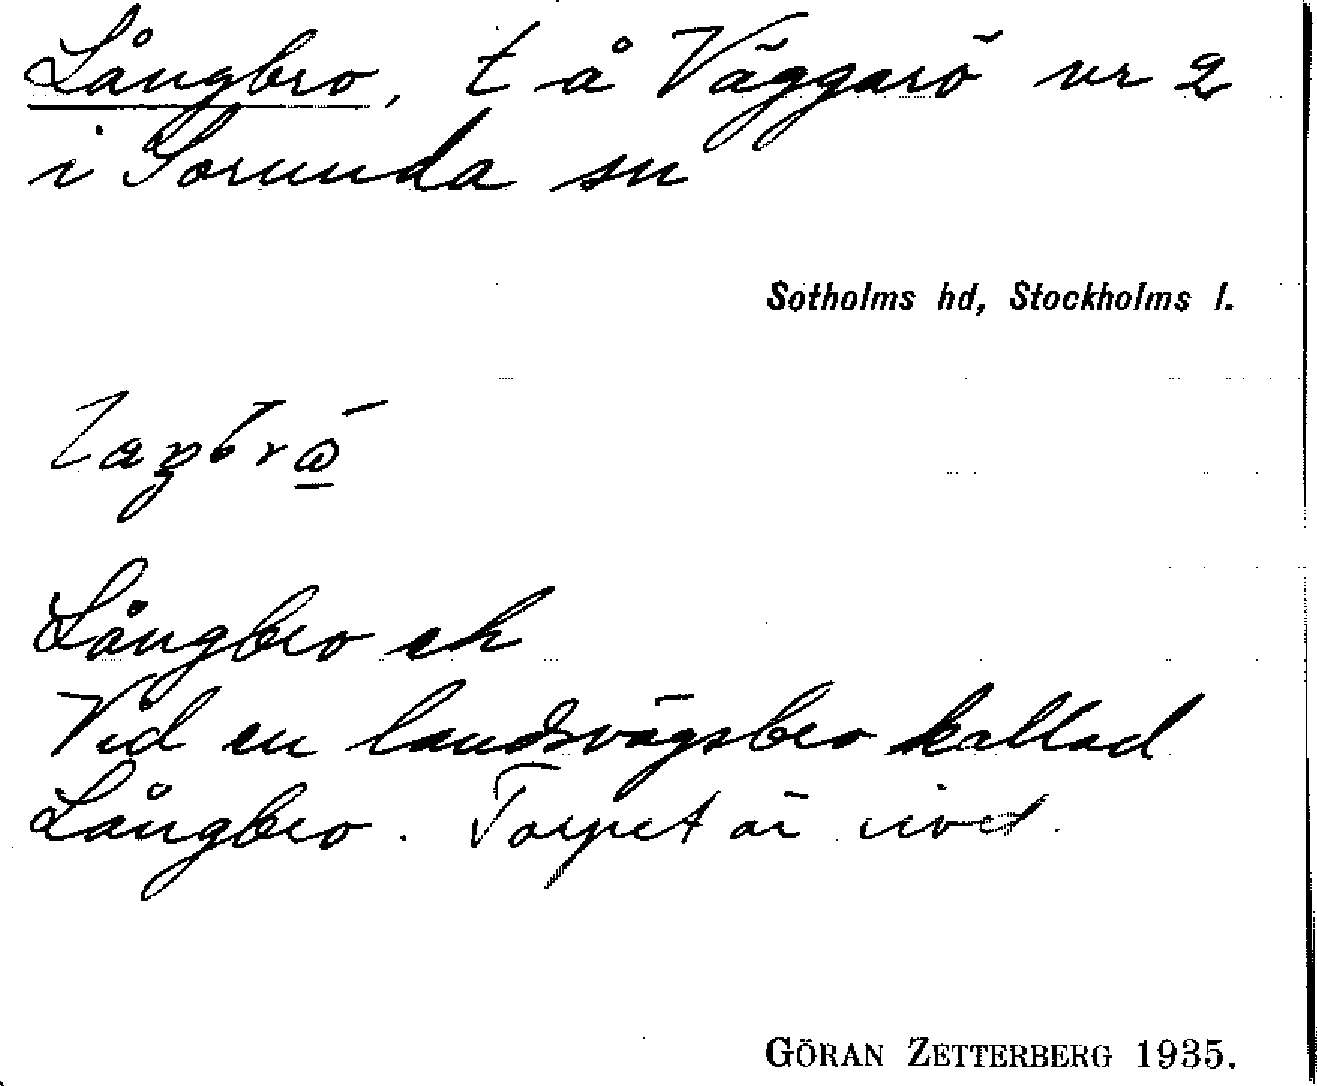 Långbro, t å Väggarö nr 2
i Sorunda sn
Sotholms hd, Stockholms l.
Långbro ek
Vid en landsvägsbro kallad
Långbro. Torpet är rivet.
GÖRAN ZETTERBERG 1935.